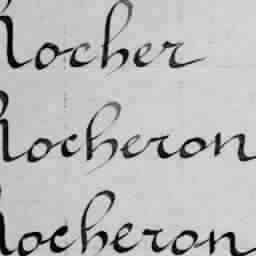 Rocher
Rocheron
Rocheron